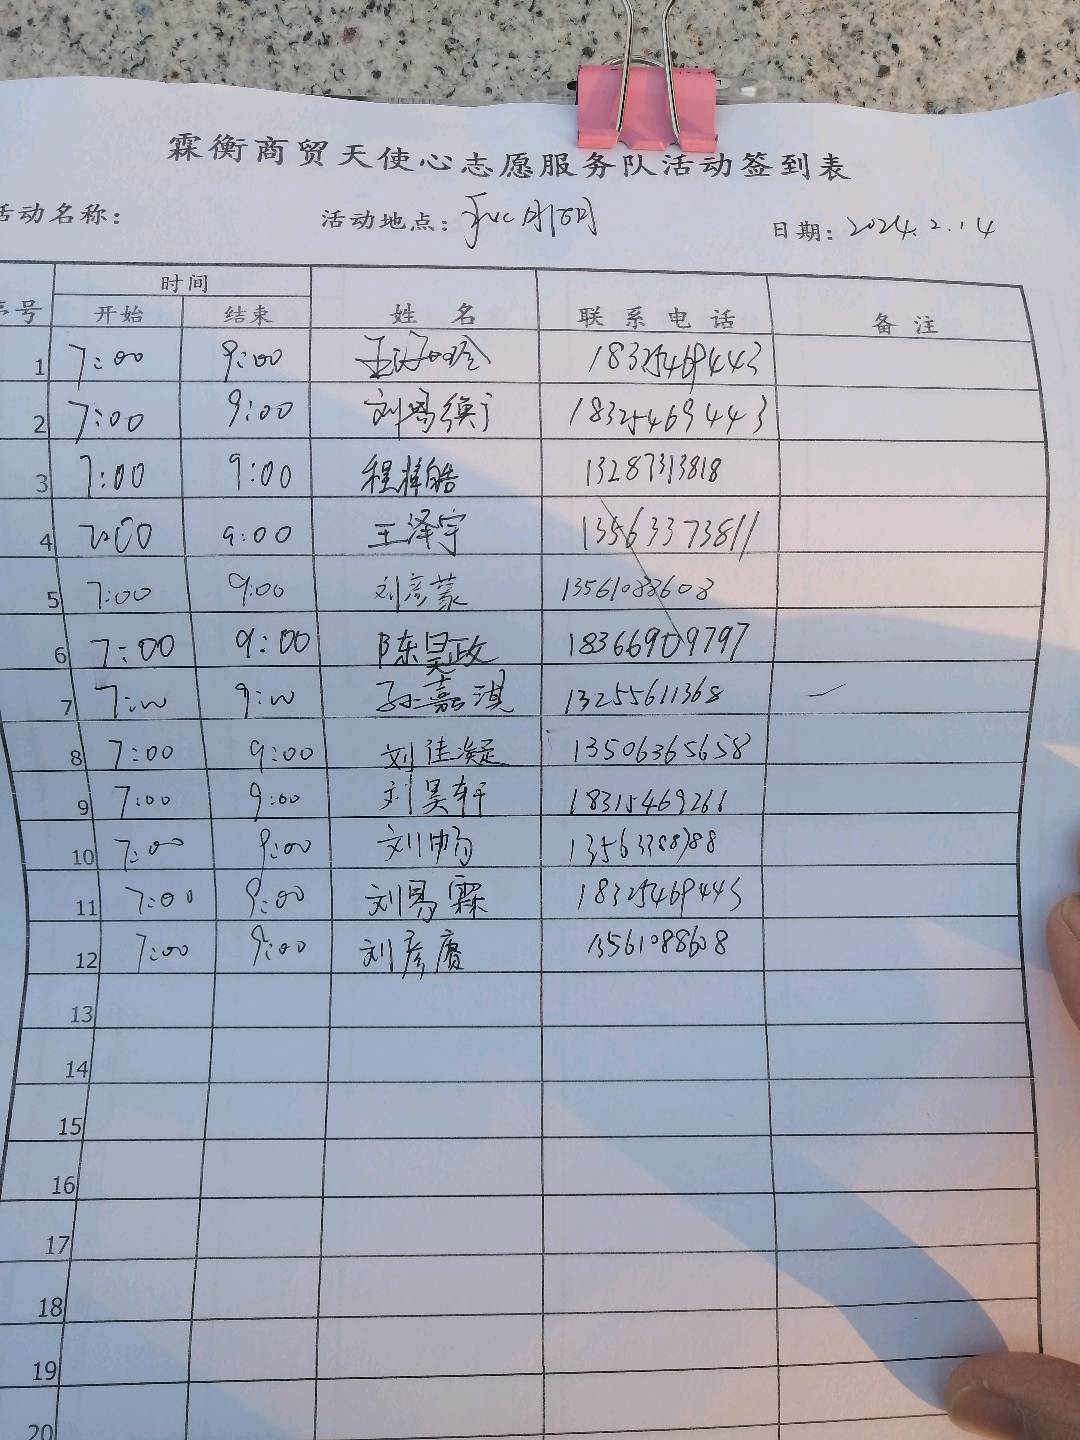 霖衡商贸天使心志愿服务队活动签到表
活动名称： 活动地点： 日期：2024.2.14
序号 时间 姓 名 联 系 电 话 备 注
开始 结束
1 7:00 9:00 18325469443
2 7:00 9:00 刘易衡 18325469443
3 7:00 9:00 程梓皓 13287313818
4 7:00 9:00 王泽宇 13563373811
5 7:00 9:00 刘彦蒙 13561088608
6 7:00 9:00 陈昊政 18366909797
7 7:00 9:00 孙嘉淇 13255611368
8 7:00 9:00 刘佳凝 13506365658
9 7:00 9:00 刘昊轩 18315469266
10 7:00 9:00 刘畅
11 7:00 9:00 刘易霖 18325469443
12 7:00 9:00 刘彦赓 13561088608
13
14
15
16
17
18
19
20